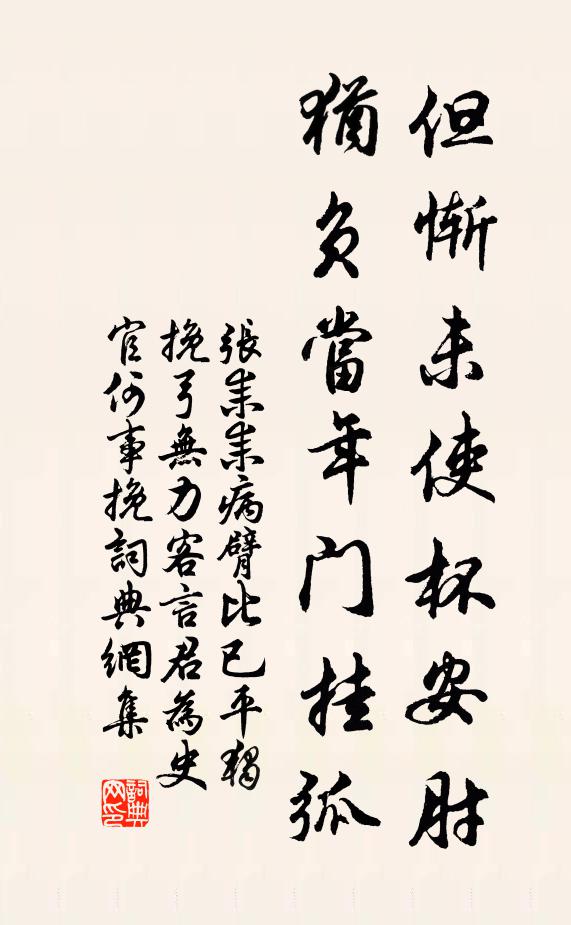 但慚未使杯安肘
猶負當年門挂弧
張耒耒病臂比已平獨
挽弓無力客言君為史
官何事挽詞典網集
詞典
网印